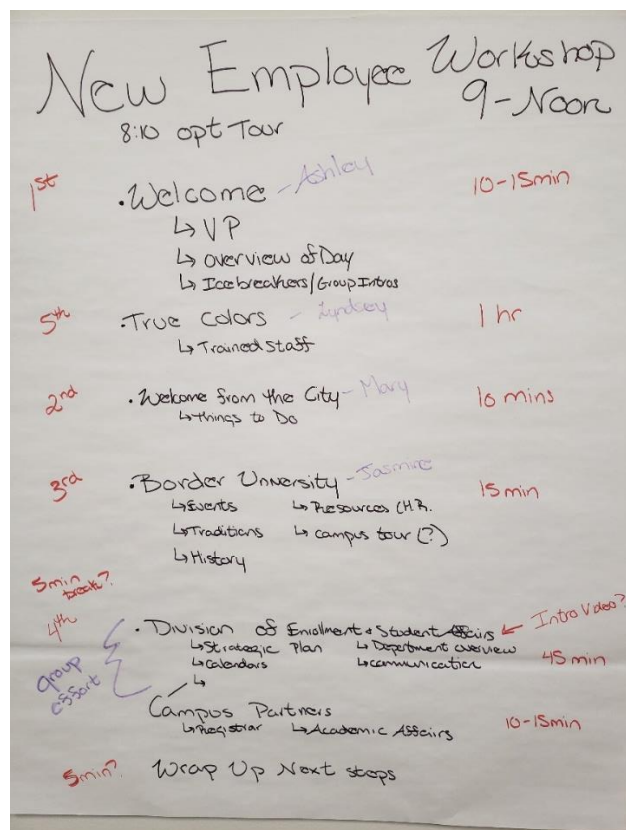 New Employee Workshop
9-Noon
8:10 opt Tour
1st .Welcome - Ashley 10-15min
↳ VP
↳ overview of Day
↳ Icebreakers/Group Intros
5th .True Colors - Lyndsey 1 hr
↳ Trained Staff
2nd . Welcome from the City - Mary 10 mins
↳ things to Do
3rd .Border University - Jasmine 15 min
↳ Events ↳ Resources (H.R.
↳ Traditions ↳ campus tour (?)
↳ History
5 min break?
4th . Division of Enrollment + Student Affairs ← Intro Video?
↳ Strategic Plan ↳ Department overview
↳ calendars ↳ communication 45 min
↳
group effort
Campus Partners
↳ Registrar ↳ Academic Affairs 10-15min
5min? Wrap Up Next steps